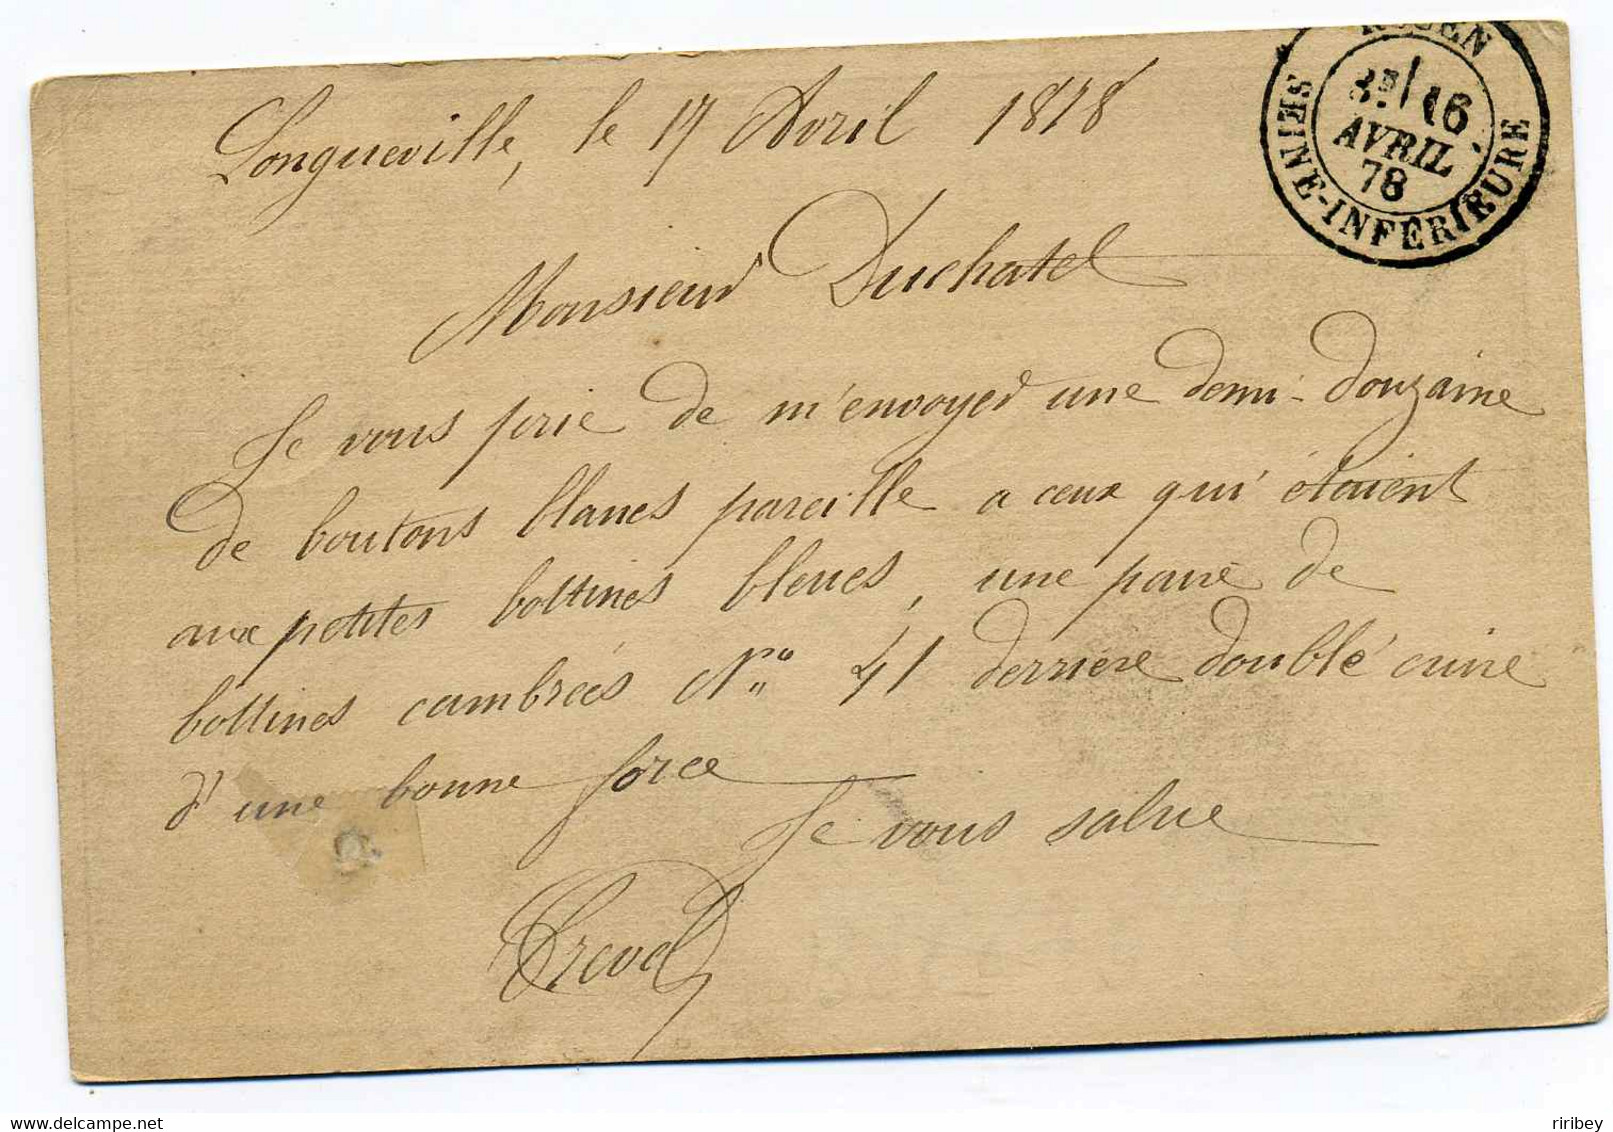 ROUEN
3E/ 16
AVRIL
78
SEINE-INFERIEURE
Longueville, le 17 Avril 1878
Monsieur Duchatel
Je vous prie de m'envoyer une demi-douzaine
de boutons blancs pareille a ceux qui étaient
aux petites bottines bleues, une paire de
bottines cambrées No 41 derrière doublé cuire
d'une bonne force
Je vous salue
riribey